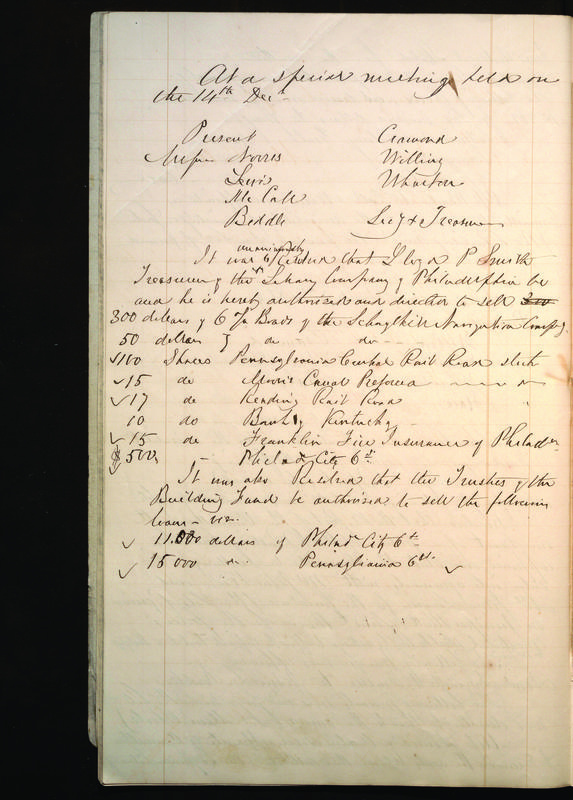 At a special meeting held on
the 14th Decr
Present Ormond
Messrs Norris Willing
Lewis Wharton
Mc Call
Beddle Secy & Treasurer
It was unanimously Resolved that Lloyd P Smith
Treasurer of the Library Company of Philadelphia be
and he is hereby authorized and directed to sell
300 dollars of 6 Bonds of the Schuylkill Navigation Company
50 dollars } do do
✓100 Shares Pennsylvania Central Rail Road stock
✓15 do Morris Canal Preferred
✓17 do Reading Rail Road "
10 do Bank of Kentucky
✓15 do Franklin Fire Insurance of Philada
$500 - Philada City 6s
It was also Resolved that the Trustees of the
Building Fund be authorized to sell the following
loans - viz.
✓ 11.000 dollars of Philada City 6s
✓ 15000 do. Pennsylvania 6s. ✓